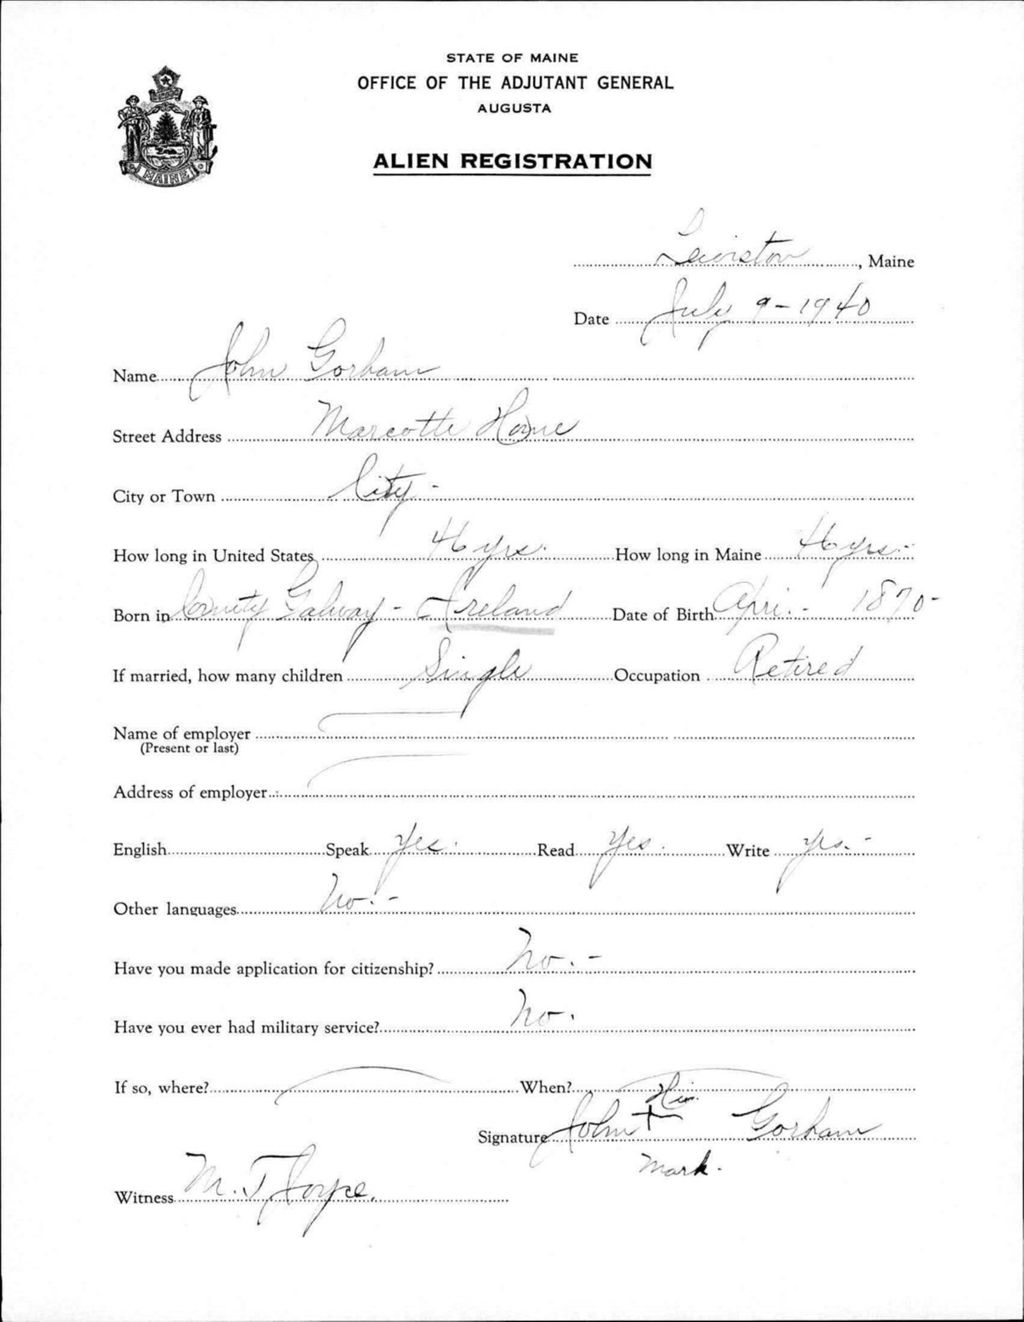 STATE OF MAINE
OFFICE OF THE ADJUTANT GENERAL
AUGUSTA
MAINE
ALIEN REGISTRATION
Lewiston, Maine
Date July 9 - 1940
Name John Gorham
Street Address Marcotte Home
City or Town City -
How long in United States 46 yrs. How long in Maine 46 yrs. -
Born in County Galway - Ireland Date of Birth Apri. - 1870 -
If married, how many children Single Occupation Retired
Name of employer
(Present or last)
Address of employer
English Speak Yes. Read Yes. Write Yes. -
Other languages No. -
Have you made application for citizenship? No. -
Have you ever had military service? No.
If so, where? When?
His
Signature John + Gorham
Mark.
Witness M. T. Joyce.